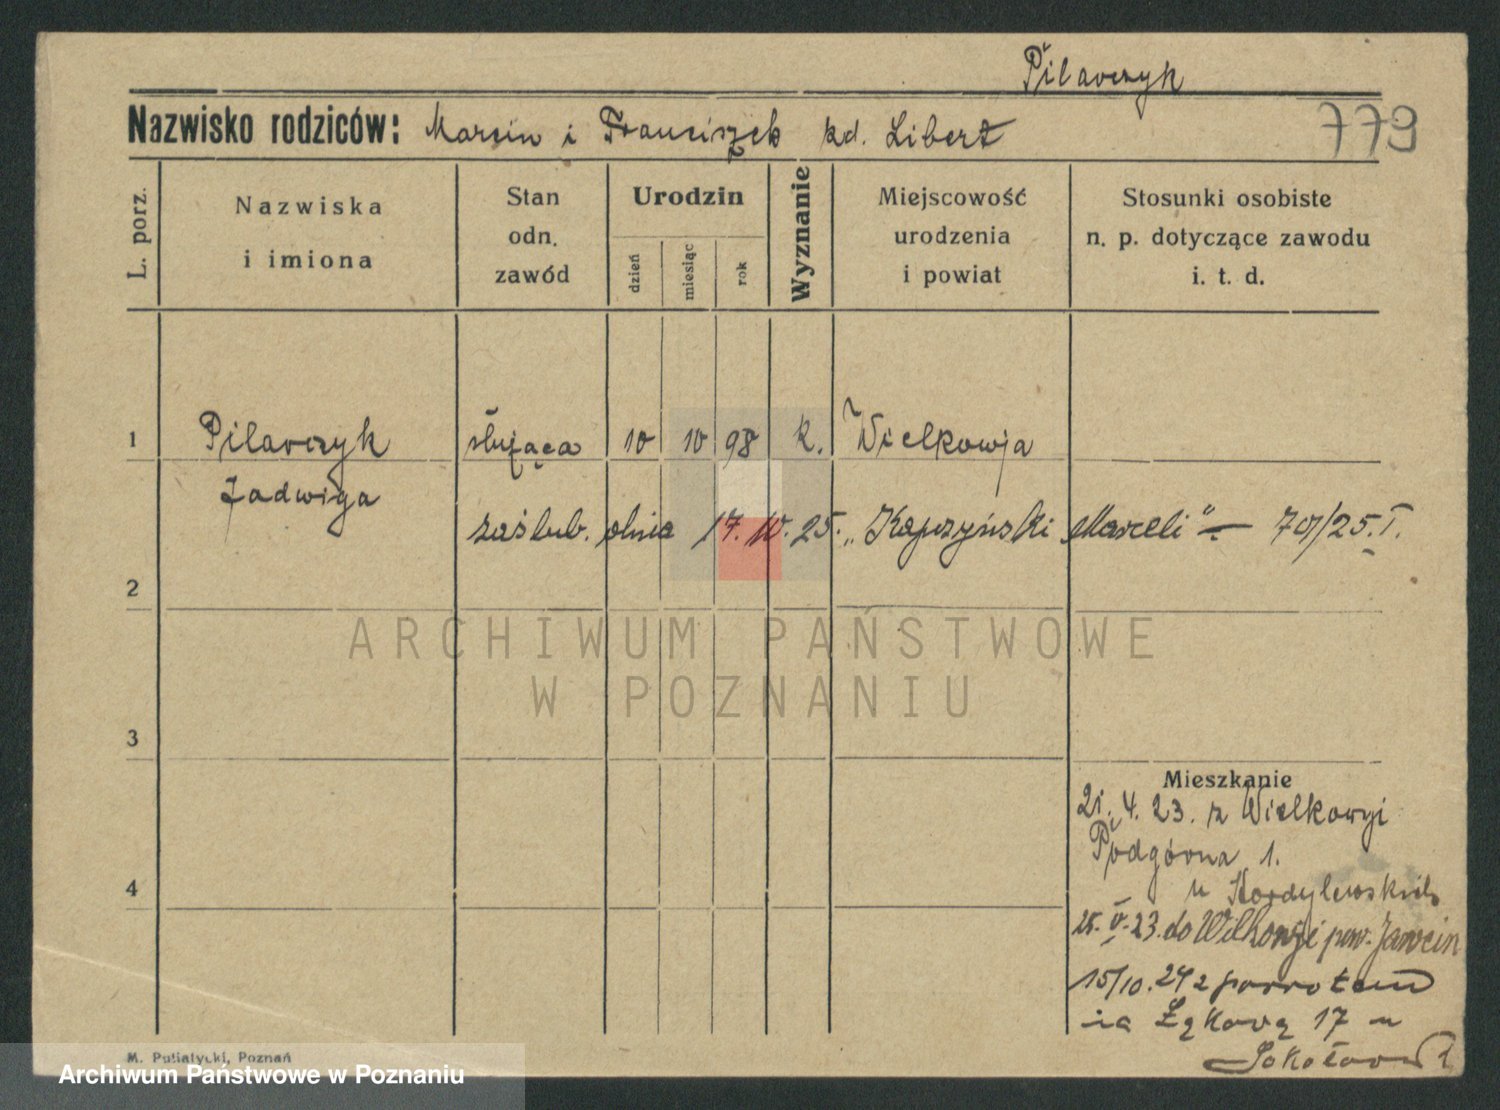 Pilarczyk
Nazwisko rodziców: Marcin i Franciszek zd. Libert
779
L. porz.
Nazwiska i imiona
Stan odn. zawód
Urodzin
dzień
miesiąc
rok
Wyznanie
Miejscowość urodzenia i powiat
Stosunki osobiste n. p. dotyczące zawodu i. t. d.
1
Pilarczyk służąca 10 10 98 k. Wielkowja
Jadwiga
zaślub. dnia 17. IV. 25. „Kapczyński Marceli" — 70/25. I.
2
ARCHIWUM PAŃSTWOWE
W POZNANIU
3
Mieszkanie
21. 4. 23. z Wielkowyi
Podgórna 1.
4
u Kordylewskich
25. V. 23. do Wilkowyi pow. Jarocin
15/10. 24 z powrotem
na Łąkową 17 u
M. Putiatycki, Poznań
Archiwum Państwowe w Poznaniu